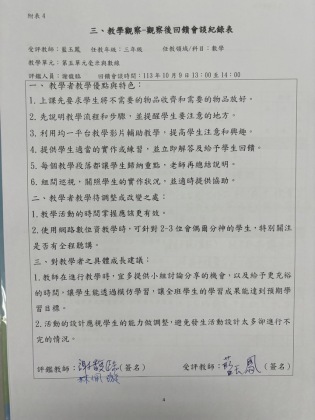 附表 4
三、教學觀察-觀察後回饋會談紀錄表
受評教師：藍玉鳳 任教年級：三年級 任教領域/科目：數學
教學單元：第五單元乘法與數線
評鑑人員：謝馥臨 回饋會談時間：113 年 10 月 9 日 13：00 至 14：00
一、教學者教學優點與特色：
1.上課先要求學生將不需要的物品收齊和需要的物品放好。
2.先說明教學流程和步驟，並提醒學生要注意的地方。
3.利用均一平台教學影片輔助教學，提高學生注意和興趣。
4.提供學生適當的實作或練習，並立即解答及給予學生回饋。
5.每個教學段落都讓學生歸納重點，老師再總結說明。
6.組間巡視，關照學生的實作狀況，並適時提供協助。
二、教學者教學待調整或改變之處：
1.教學活動的時間掌握應該更有效。
2.使用網路數位資教學時，可針對 2-3 位會偶爾分神的學生，特別關注
是否有全程聽講。
三、對教學者之具體成長建議：
1.教師在進行教學時，宜多提供小組討論分享的機會，以及給予更充裕
的時間，讓學生能透過模仿學習，讓全班學生的學習成果能達到預期學
習目標。
2.活動的設計應視學生的能力做調整，避免發生活動設計太多卻進行不
完的情況。
評鑑教師：謝馥臨（簽名） 受評教師：藍玉鳳（簽名）
4